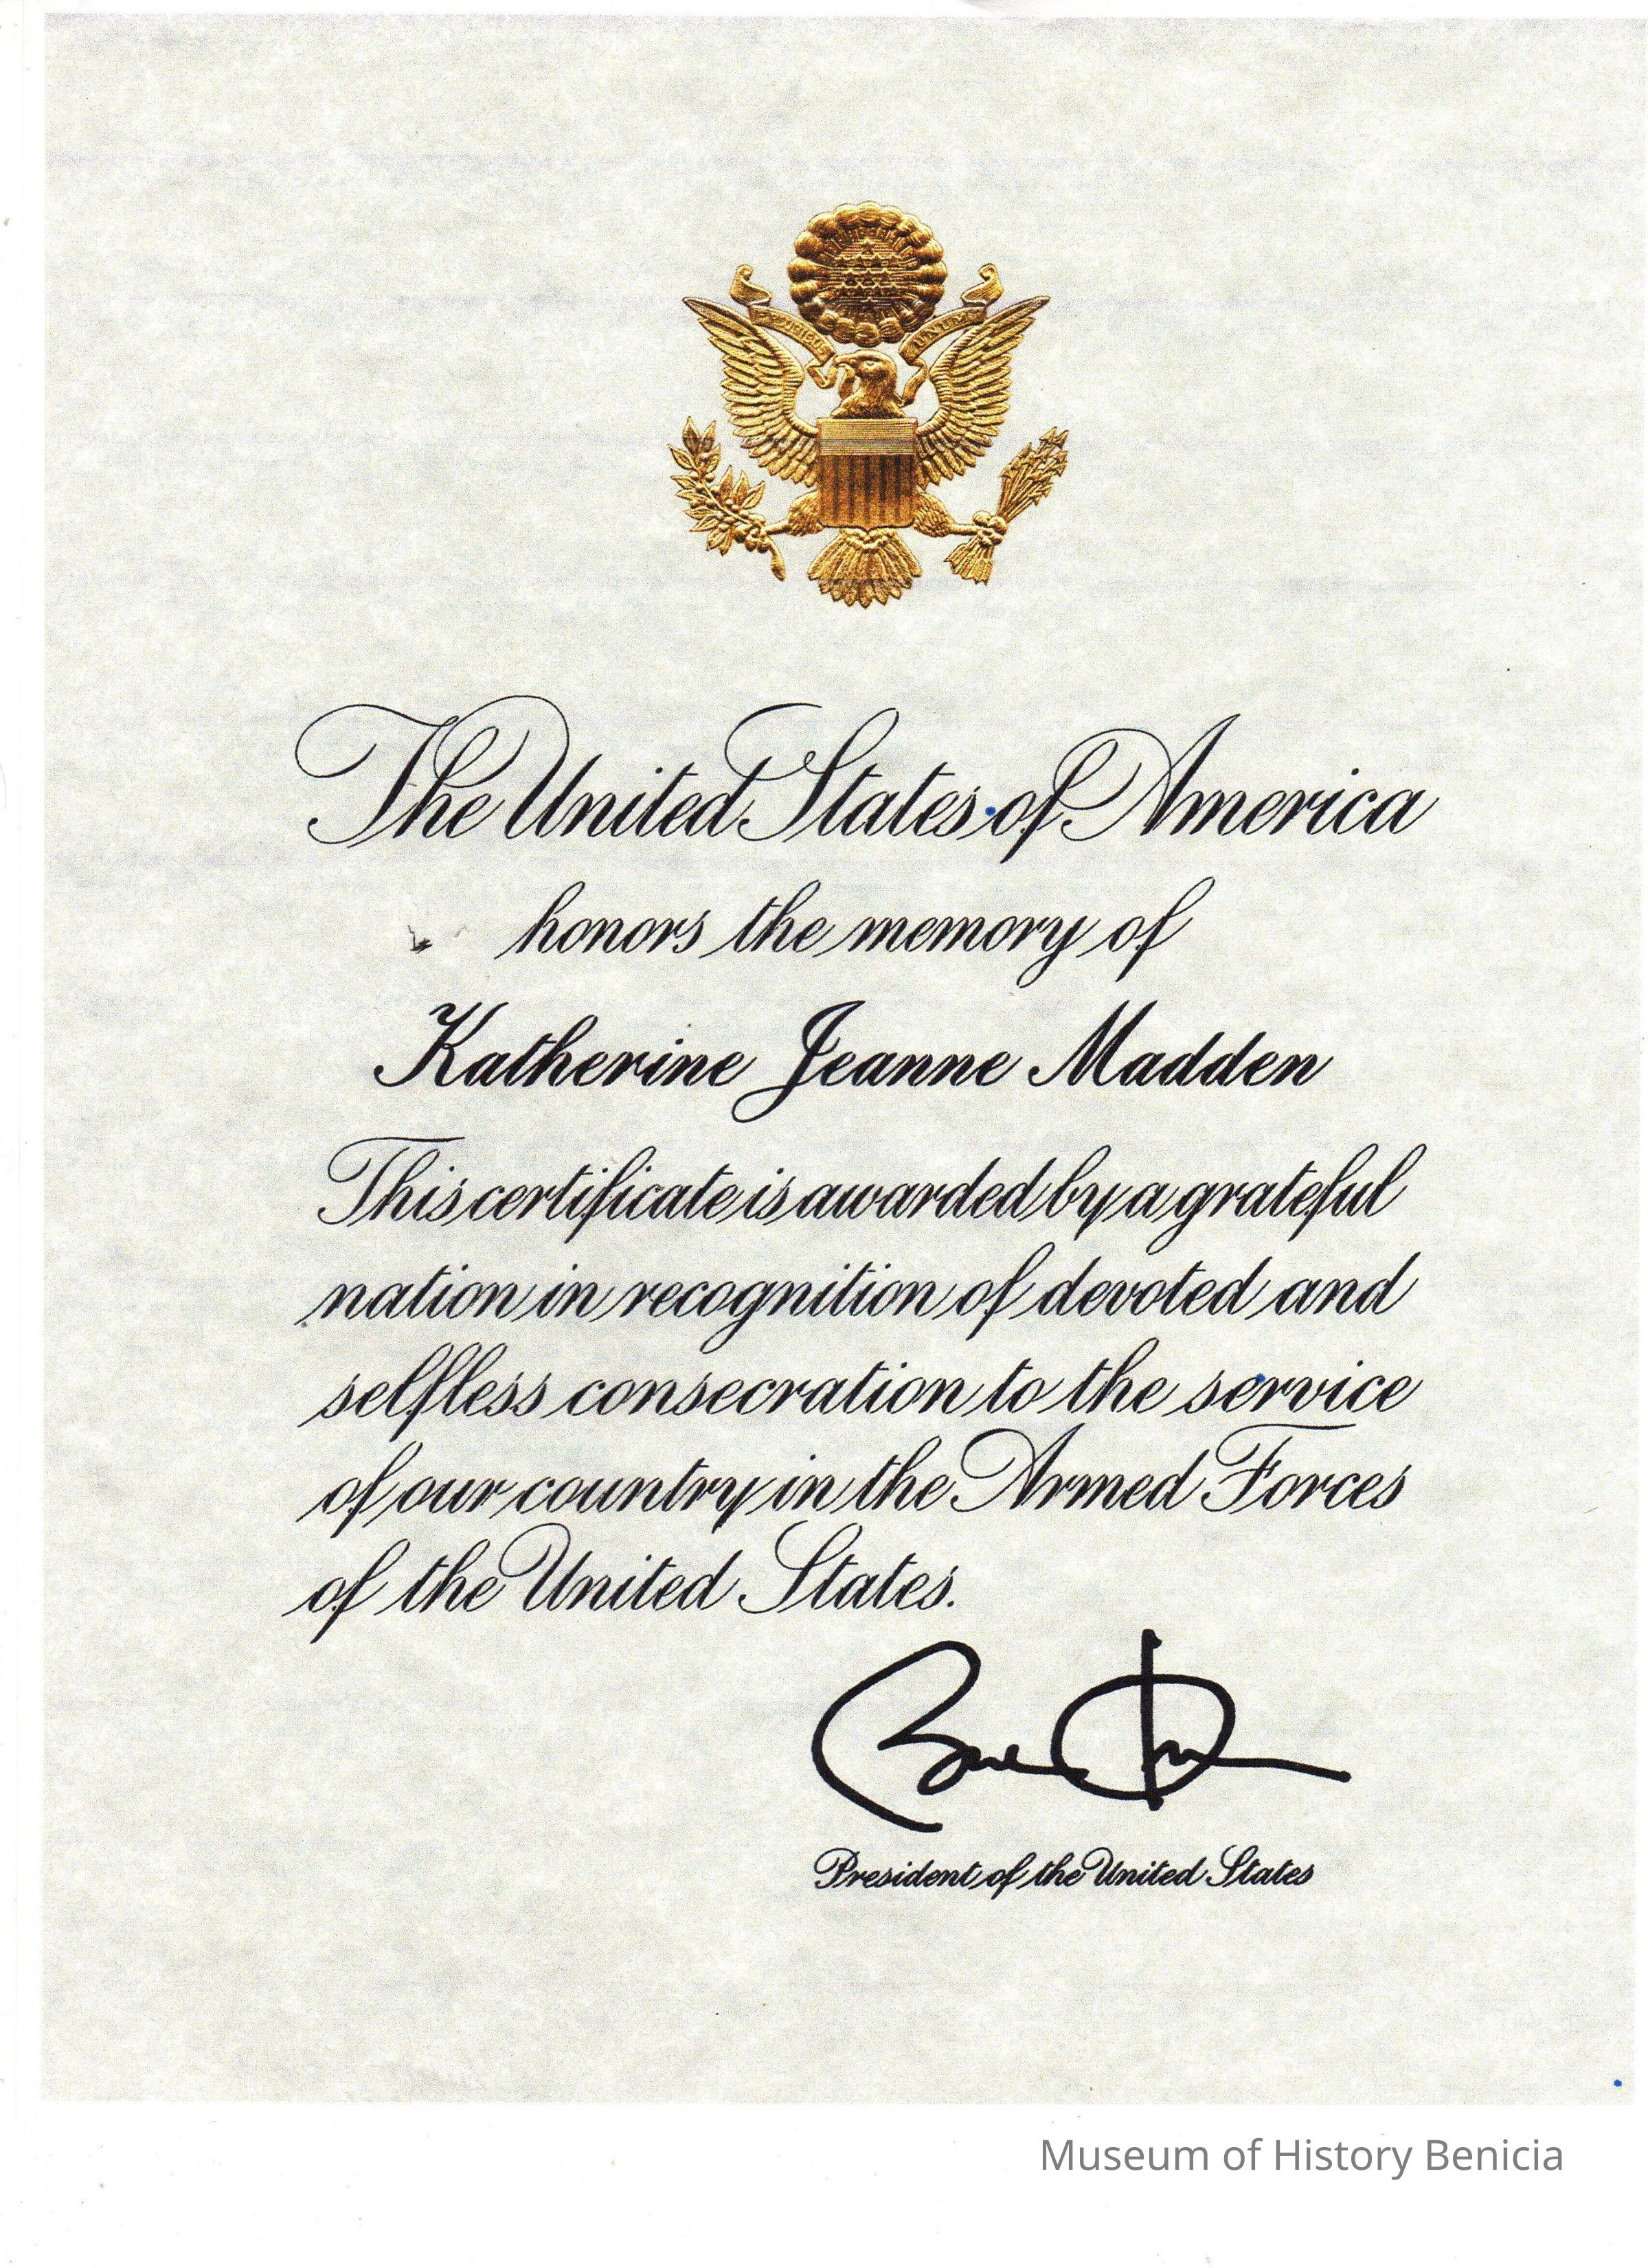 E PLURIBUS UNUM
The United States of America
honors the memory of
Katherine Jeanne Madden
This certificate is awarded by a grateful
nation in recognition of devoted and
selfless consecration to the service
of our country in the Armed Forces
of the United States.
President of the United States
Museum of History Benicia